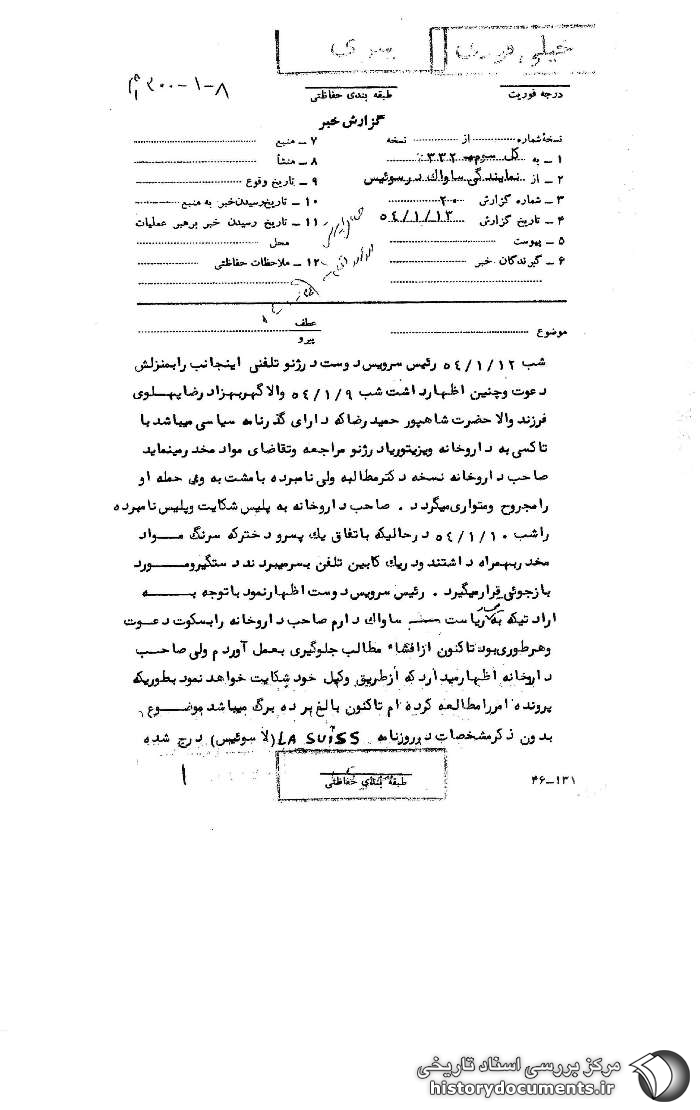 خیلی فوری
سری
درجه فوریت
طبقه بندی حفاظتی
۳۰۰-۱-۸
گزارش خبر
نسخه شماره از نسخه
۱ ـ به کل سوم ۳۳۲
۲ ـ از نمایندگی ساواك در سوئیس
۳ ـ شماره گزارش ۲۰
۴ ـ تاریخ گزارش ۵۴/۱/۱۳
۵ ـ پیوست
۶ ـ گیرندگان خبر
۷ ـ منبع
۸ ـ منشأ
۹ ـ تاریخ وقوع
۱۰ ـ تاریخ رسیدن خبر به منبع
۱۱ ـ تاریخ رسیدن خبر برهبر عملیات
محل
۱۲ ـ ملاحظات حفاظتی
موضوع
عطف
پیرو
شب ۵۴/۱/۱۲ رئیس سرویس دوست در ژنو تلفنی اینجانب را بمنزلش
دعوت و چنین اظهار داشت شب ۵۴/۱/۹ والا گهر بهزاد رضا پهلوی
فرزند والا حضرت شاهپور حمید رضا که دارای گذرنامه سیاسی میباشد با
تاکسی به داروخانه ویزیتوریاد رژنو مراجعه و تقاضای مواد مخدر مینماید
صاحب داروخانه نسخه دکتر مطالبه ولی نامبرده با مشت به وی حمله او
را مجروح و متواری میگردد . صاحب داروخانه به پلیس شکایت و پلیس نامبرده
را شب ۵۴/۱/۱۰ در حالیکه باتفاق یك پسر و دختر که سرنگ مواد
مخدر بهمراه داشتند در یك کابین تلفن بسر میبردند دستگیر و مورد
بازجوئی قرار میگیرد . رئیس سرویس دوست اظهار نمود با توجه به
ارادتیکه به ریاست ساواك دارم صاحب داروخانه را بسکوت دعوت
و هر طوری بود تاکنون از افشاء مطالب جلوگیری بعمل آوردم ولی صاحب
داروخانه اظهار میدارد که از طریق وکیل خود شکایت خواهد نمود بطوریکه
پرونده امر را مطالعه کرده ام تاکنون بالغ بر ده برگ میباشد موضوع
بدون ذکر مشخصات در روزنامه LA SUISS (لا سوئیس) درج شده
طبقه بندی حفاظتی
۱
۴۶-۱۳۱
مرکز بررسی اسناد تاریخی
historydocuments.ir